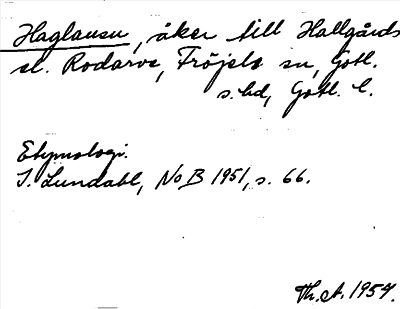 Haglausu, åker till Hallgårds
st. Rodarve, Fröjels sn, Gotl.
s. hd, Gotl. l.
Etymologi.
I. Lundahl, NoB 1951, s. 66.
Th. A. 1954.